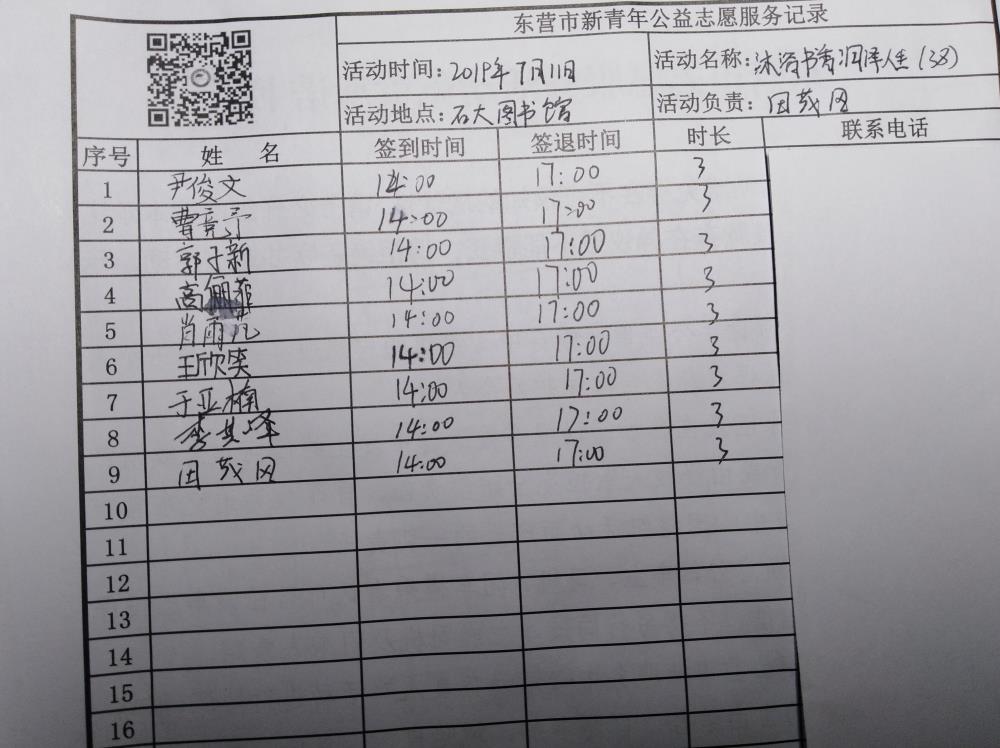 东营市新青年公益志愿服务记录
活动时间:2019年7月11日 活动名称:沐浴书香润泽人生(38)
活动地点:石大图书馆 活动负责:田茂网
序号 姓 名 签到时间 签退时间 时长 联系电话
1 尹俊文 14:00 17:00 3
2 曹竞予 14:00 17:00 3
3 郭子新 14:00 17:00 3
4 高俪菲 14:00 17:00 3
5 肖雨 14:00 17:00 3
6 王欣奕 14:00 17:00 3
7 于亚楠 14:00 17:00 3
8 李其峰 14:00 17:00 3
9 14:00 17:00 3
10
11
12
13
14
15
16